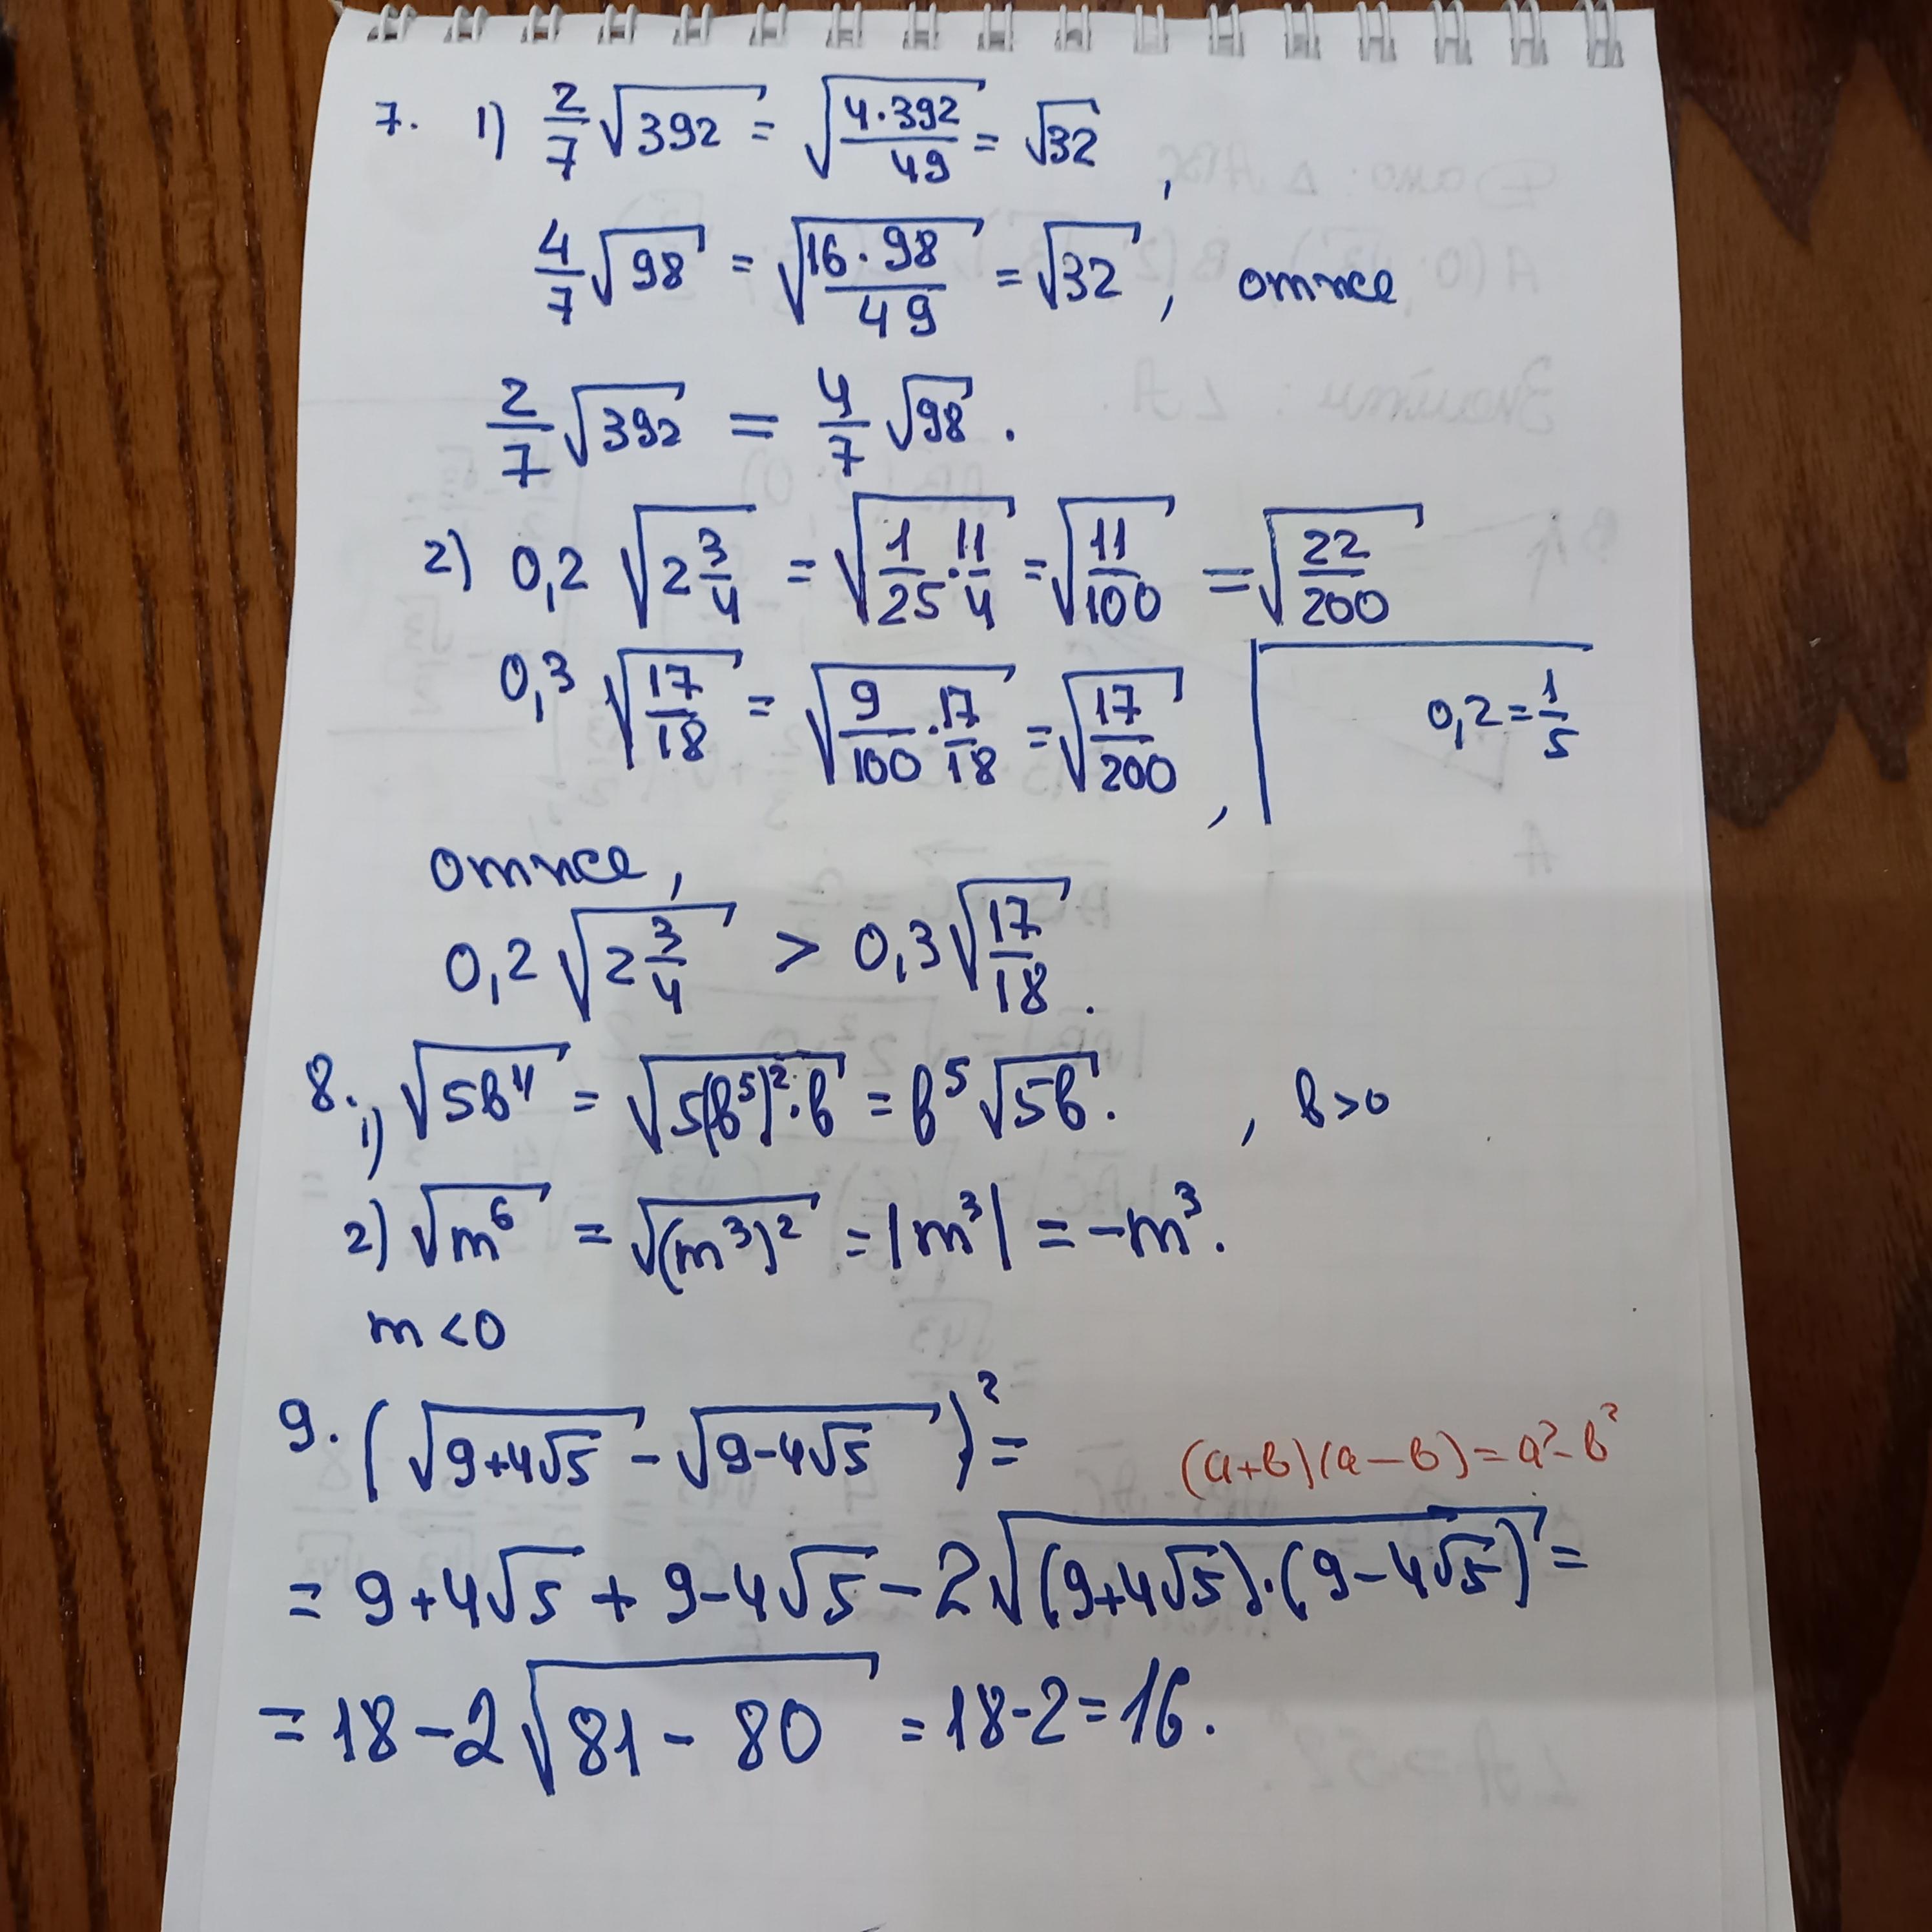 7. 1) 2/7 √392 = √(4·392/49) = √32,
4/7 √98 = √(16·98/49) = √32, отже
2/7 √392 = 4/7 √98.
2) 0,2 √(2 3/4) = √(1/25 · 11/4) = √(11/100) = √(22/200)
0,3 √(17/18) = √(9/100 · 17/18) = √(17/200),
0,2 = 1/5
отже,
0,2 √(2 3/4) > 0,3 √(17/18).
8. 1) √(5b¹¹) = √(5(b⁵)²·b) = b⁵ √(5b). , b>0
2) √(m⁶) = √((m³)²) = |m³| = -m³.
m<0
9. (√(9+4√5) - √(9-4√5))² =
(a+b)(a-b) = a²-b²
= 9+4√5 + 9-4√5 - 2√((9+4√5)·(9-4√5)) =
= 18 - 2√(81 - 80) = 18-2 = 16.